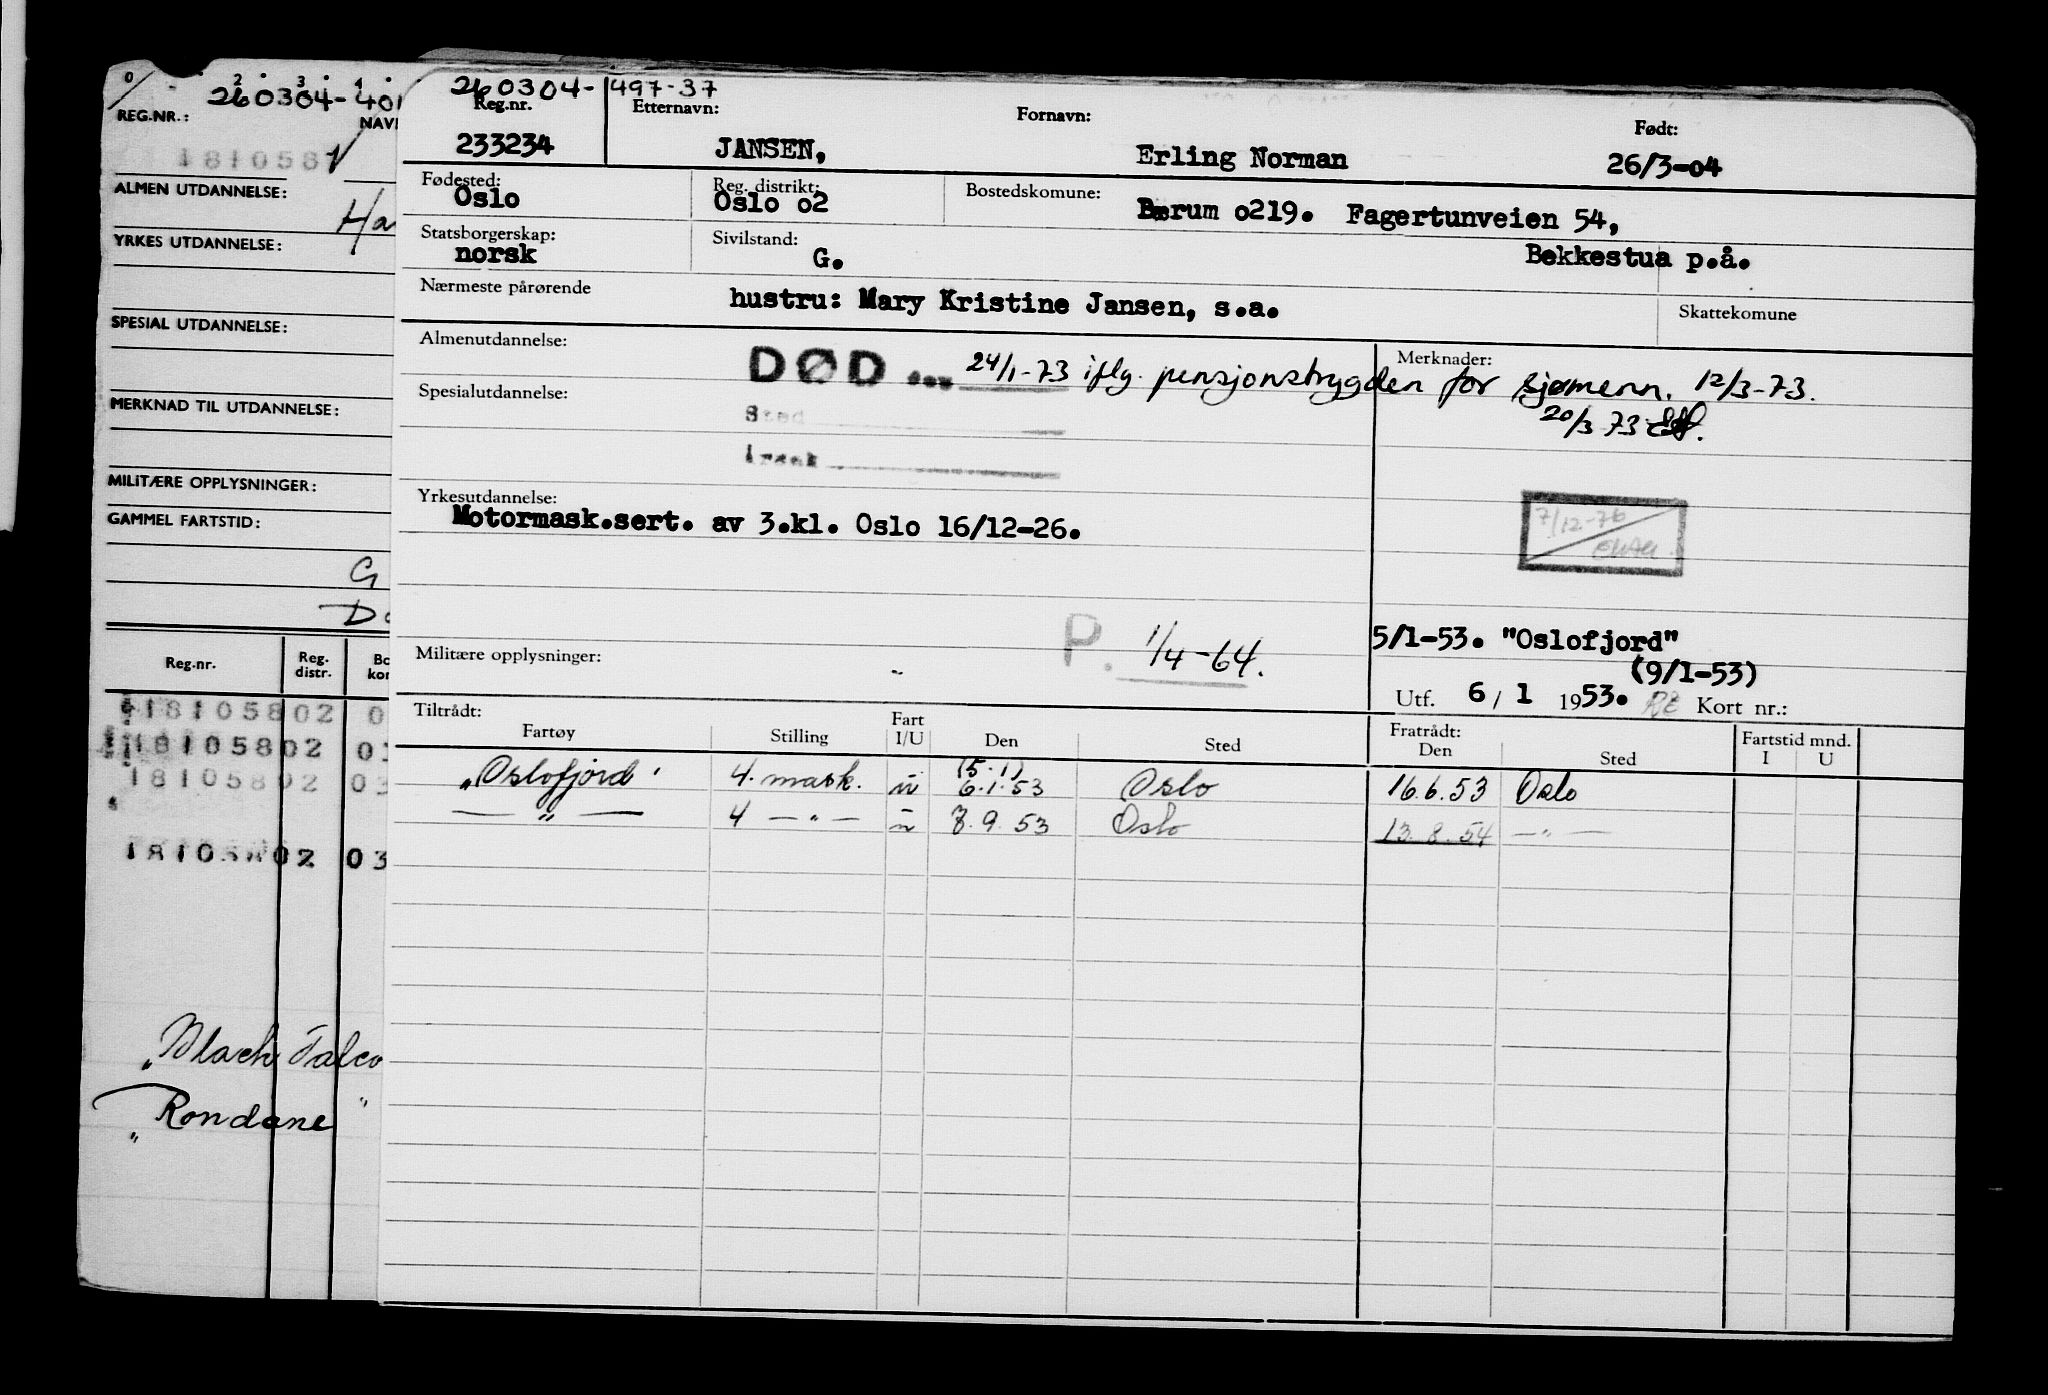 260304-401
REG.NR.:
1810581
ALMEN UTDANNELSE:
YRKES UTDANNELSE:
SPESIAL UTDANNELSE:
MERKNAD TIL UTDANNELSE:
MILITÆRE OPPLYSNINGER:
GAMMEL FARTSTID:
G
Reg.nr. Reg. distr.
18105802 0
18105802 03
18105802 03
18105802 03
"Black Falco
"Rondane"
260304-497-37
Reg.nr. Etternavn: Fornavn: Født:
233234 JANSEN, Erling Norman 26/3-04
Fødested: Reg. distrikt: Bostedskomune:
Oslo Oslo o2 Bærum o219. Fagertunveien 54,
Statsborgerskap: Sivilstand:
norsk G. Bekkestua p.å.
Nærmeste pårørende hustru: Mary Kristine Jansen, s.a. Skattekomune
Almenutdannelse: Merknader:
DØD 24/1-73 iflg. pensjonstrygden for sjømenn. 12/3-73.
Spesialutdannelse: 20/3 73
Sted
Årsak
Yrkesutdannelse:
Motormask.sert. av 3.kl. Oslo 16/12-26.
7/12-76
P. 1/4-64.
5/1-53. "Oslofjord"
Militære opplysninger: - (9/1-53)
Utf. 6/1 1953. Kort nr.:
Tiltrådt: Fratrådt: Fartstid mnd.
Fartøy Stilling Fart I/U Den Sted Den Sted I U
(5.1)
"Oslofjord" 4. mask. u 6.1.53 Oslo 16.6.53 Oslo
— " — 4 — " — u 8.9.53 Oslo 13.8.54 — " —